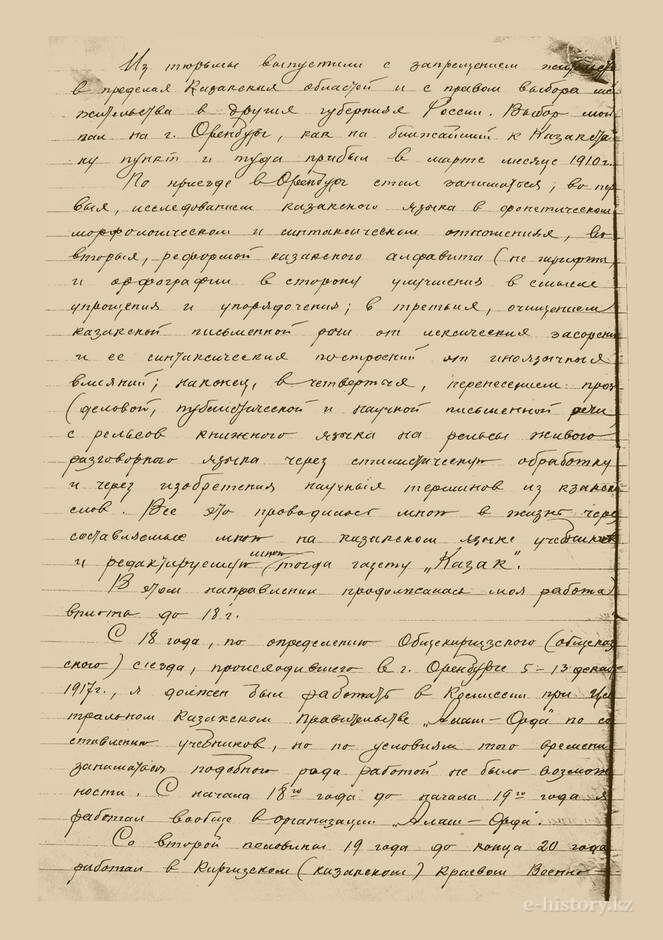 Из тюрьмы выпустили с запрещением
в пределах Казакских областей и с правом выбора
жительства в других губерниях России. Выбор мой
пал на г. Оренбург, как на ближайший к Казакста
ну пункт и туда прибыл в марте месяце 1910 г.
По приезде в Оренбург стал заниматься; во пер
вых, исследованием казакского языка в фонетическом
морфологическом и синтаксическом отношениях, во
вторых, реформой казакского алфавита (не шрифта
и орфографии в сторону улучшения в смысле
упрощения и упорядочения; в третьих, очищением
казакской письменной речи от лексических засорени
и ее синтаксических построений от иноязычных
влияний; наконец, в четвертых, перенесением проз
(деловой, публистической и научной письменной речи
с рельсов книжного языка на рельсы живого
разговорного языка через стилистическую обработку
и через изобретения научных терминов из казак
слов. Все это проводилось мною в жизнь через
составляемые мною на казакском языке учебников
и редактируемую мною тогда газету „Казак“.
В этом направлении продолжалась моя работа
вплоть до 18 г.
С 18 года, по определению Общекиргизского (общеказ
ского) съезда, происходившего в г. Оренбурге 5–13 декаб
1917 г., я должен был работать в Комиссии при Цен
тральном Казакском правительстве „Алаш-Орда“ по со
ставлению учебников, но по условиям того времени
заниматься подобного рода работой не было возмож
ности. С начала 18го года до начала 19го года я
работал вообще в организации „Алаш-Орда“.
Со второй половины 19 года до конца 20 года
работал в Киргизском (казакском) Краевом Военно
e-history.kz